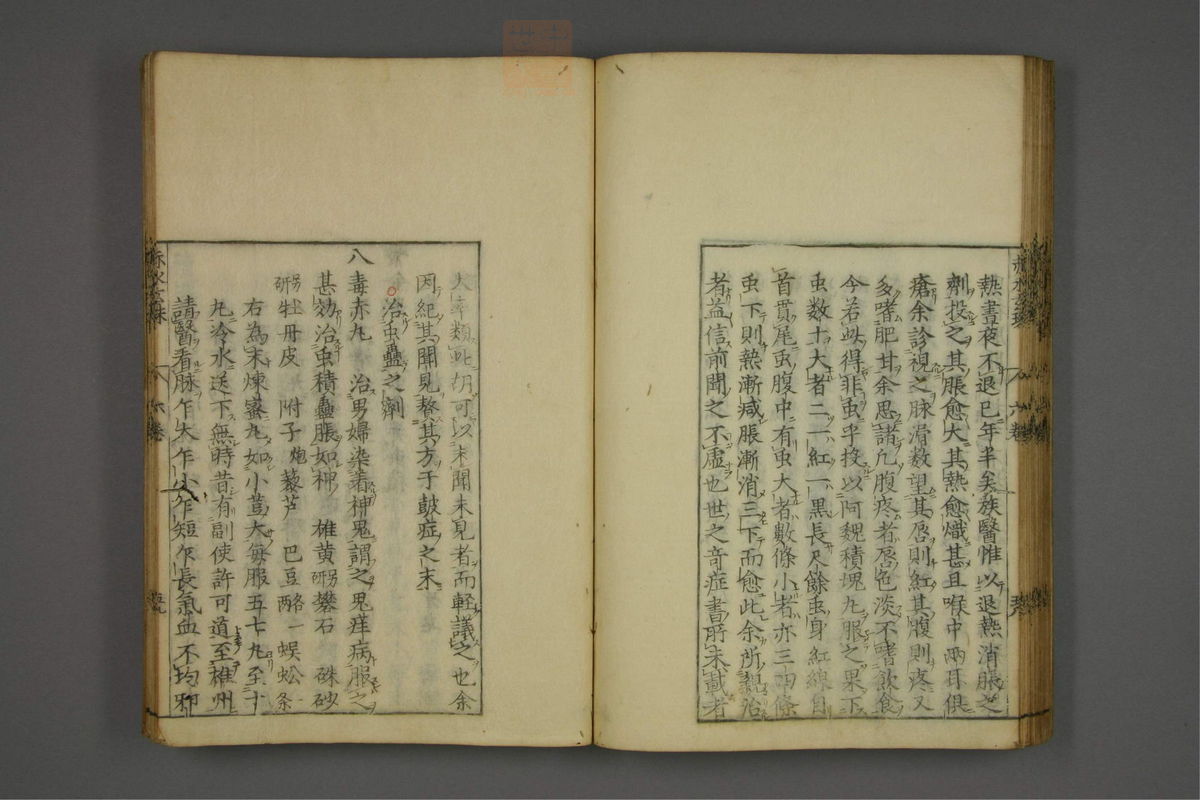 熱晝夜不退已年半矣族醫惟以退熱消脹之
劑投之其脹愈大其熱愈熾甚且喉中兩耳俱
瘡余診視之脉滑数望其唇則紅其腹則疼又
多嗜肥甘余思諸凢腹疼者唇色淡不嗜飲食
今若此得非虫乎投以阿魏積塊丸服之果下
虫数十大者二一紅一黑長尺餘虫身紅線自
首貫尾虫腹中有虫大者數條小者亦三四條
虫下則熱漸减脹漸消三下而愈此余所親治
者益信前聞之不虛也世之竒症書所未載者
大率類此胡可以未聞未見者而軽議之也余
因紀其聞見贅其方于皷症之末
治虫蠱之劑
八毒赤丸 治男婦染着神鬼謂之鬼疰病服之
甚効治虫積蠱脹如神 雄黄 礬石 硃砂
牡丹皮 附子炮 藜芦 巴豆 蜈蚣一条
右為末煉蜜丸如小荳大每服五七丸至十
丸冷水送下無時昔有副使許可道至雄州
請醫看脉乍大乍小乍短乍長氣血不均邪
六卷
六卷